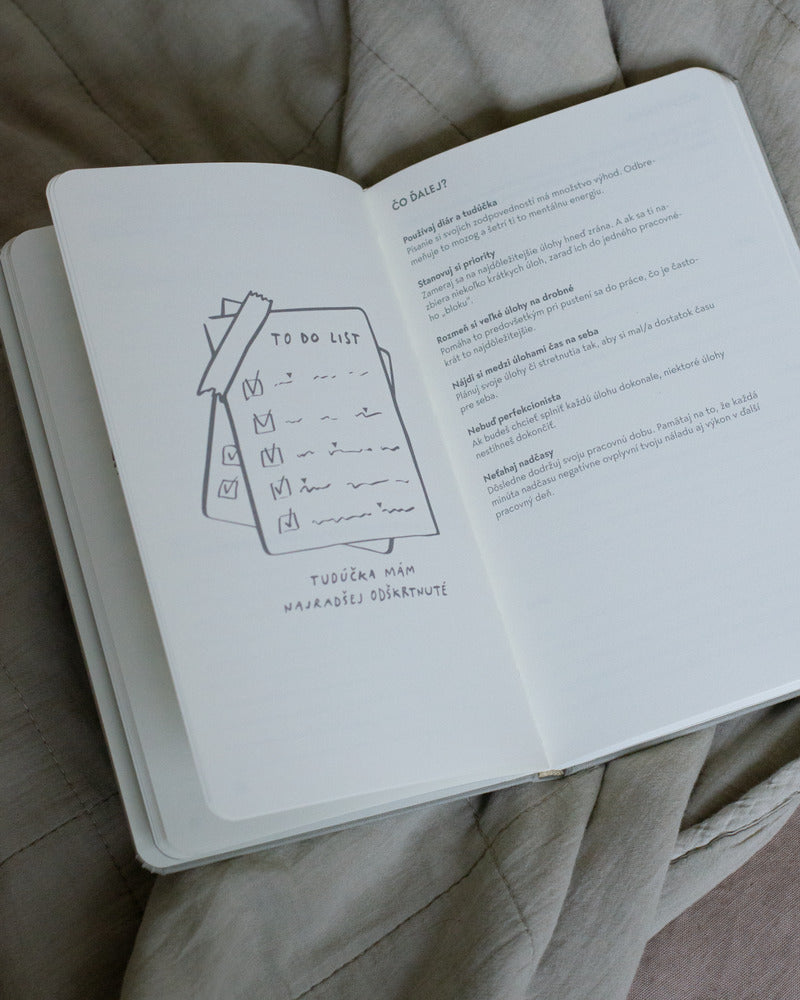 TO DO LIST
TUDÚČKA MÁM
NAJRADŠEJ ODŠKRTNUTÉ
ČO ĎALEJ?
Používaj diár a tudúčka
Písanie si svojich zodpovedností má množstvo výhod. Odbre-
meňuje to mozog a šetrí ti to mentálnu energiu.
Stanovuj si priority
Zameraj sa na najdôležitejšie úlohy hneď zrána. A ak sa ti na-
zbiera niekoľko krátkych úloh, zaraď ich do jedného pracovné-
ho „bloku".
Rozmeň si veľké úlohy na drobné
Pomáha to predovšetkým pri pustení sa do práce, čo je často-
krát to najdôležitejšie.
Nájdi si medzi úlohami čas na seba
Plánuj svoje úlohy či stretnutia tak, aby si mal/a dostatok času
pre seba.
Nebuď perfekcionista
Ak budeš chcieť splniť každú úlohu dokonale, niektoré úlohy
nestihneš dokončiť.
Neťahaj nadčasy
Dôsledne dodržuj svoju pracovnú dobu. Pamätaj na to, že každá
minúta nadčasu negatívne ovplyvní tvoju náladu aj výkon v ďalší
pracovný deň.